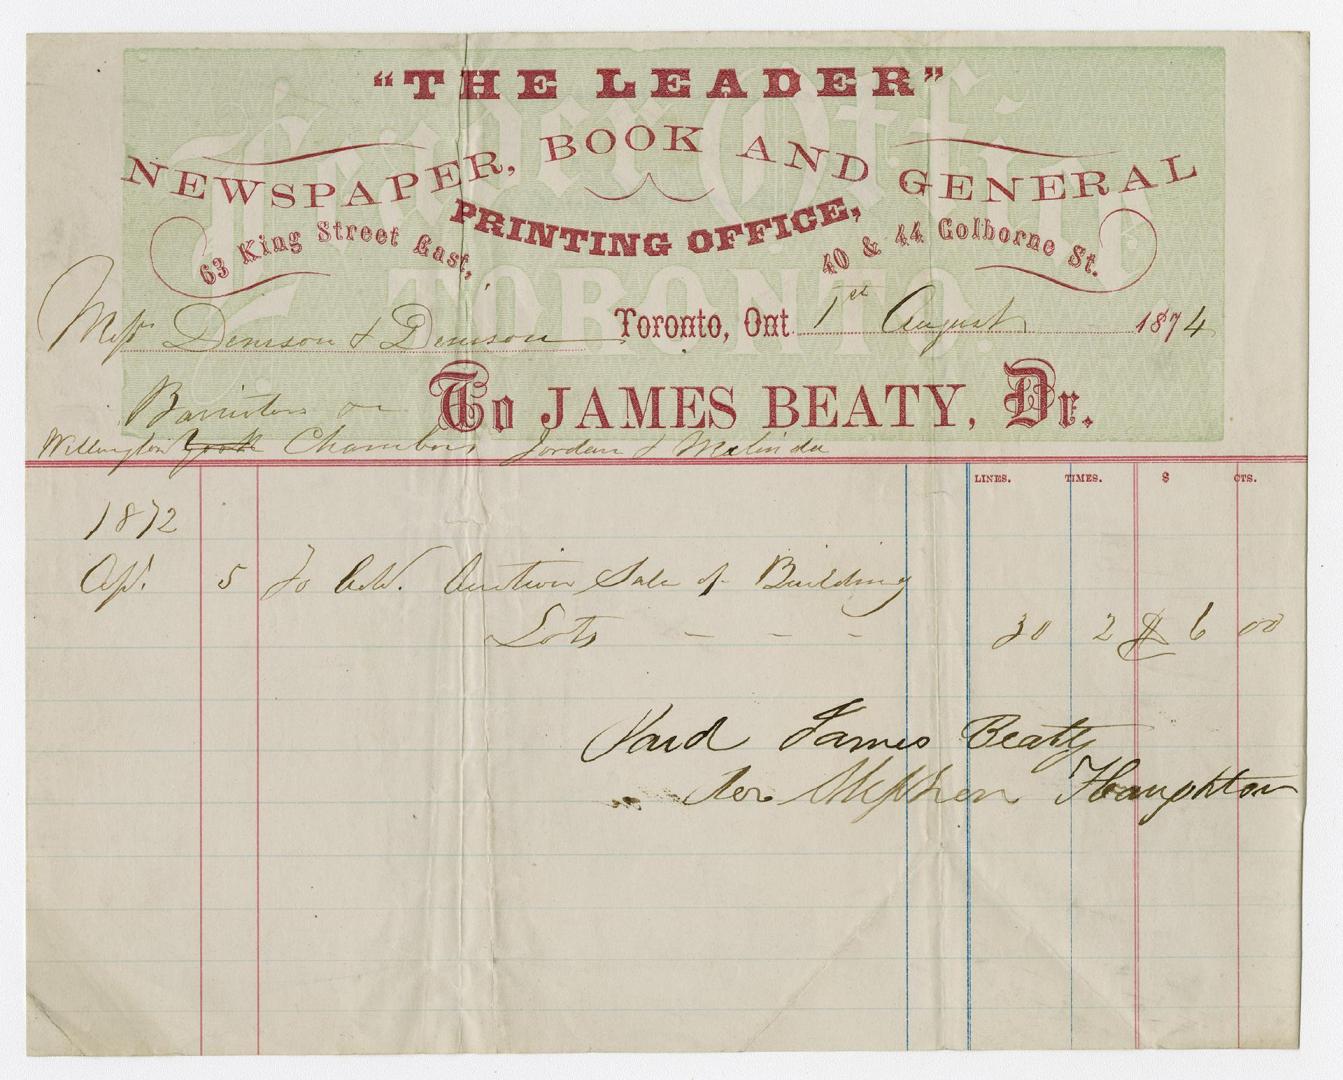 "THE LEADER"
NEWSPAPER, BOOK AND GENERAL
PRINTING OFFICE,
63 King Street East, 40 & 44 Colborne St.
Leader Office
TORONTO.
Messrs Denison & Denison Toronto, Ont. 1st August 1874
Barristers &c To JAMES BEATY, Dr.
Wellington York Chambers Jordan & Melinda
LINES. TIMES. $ CTS.
1872
Apl. 5 To Adv. Auction Sale of Building
Lots - - - - 30 2 $ 6 00
Paid James Beaty
Per Stephen Haughton